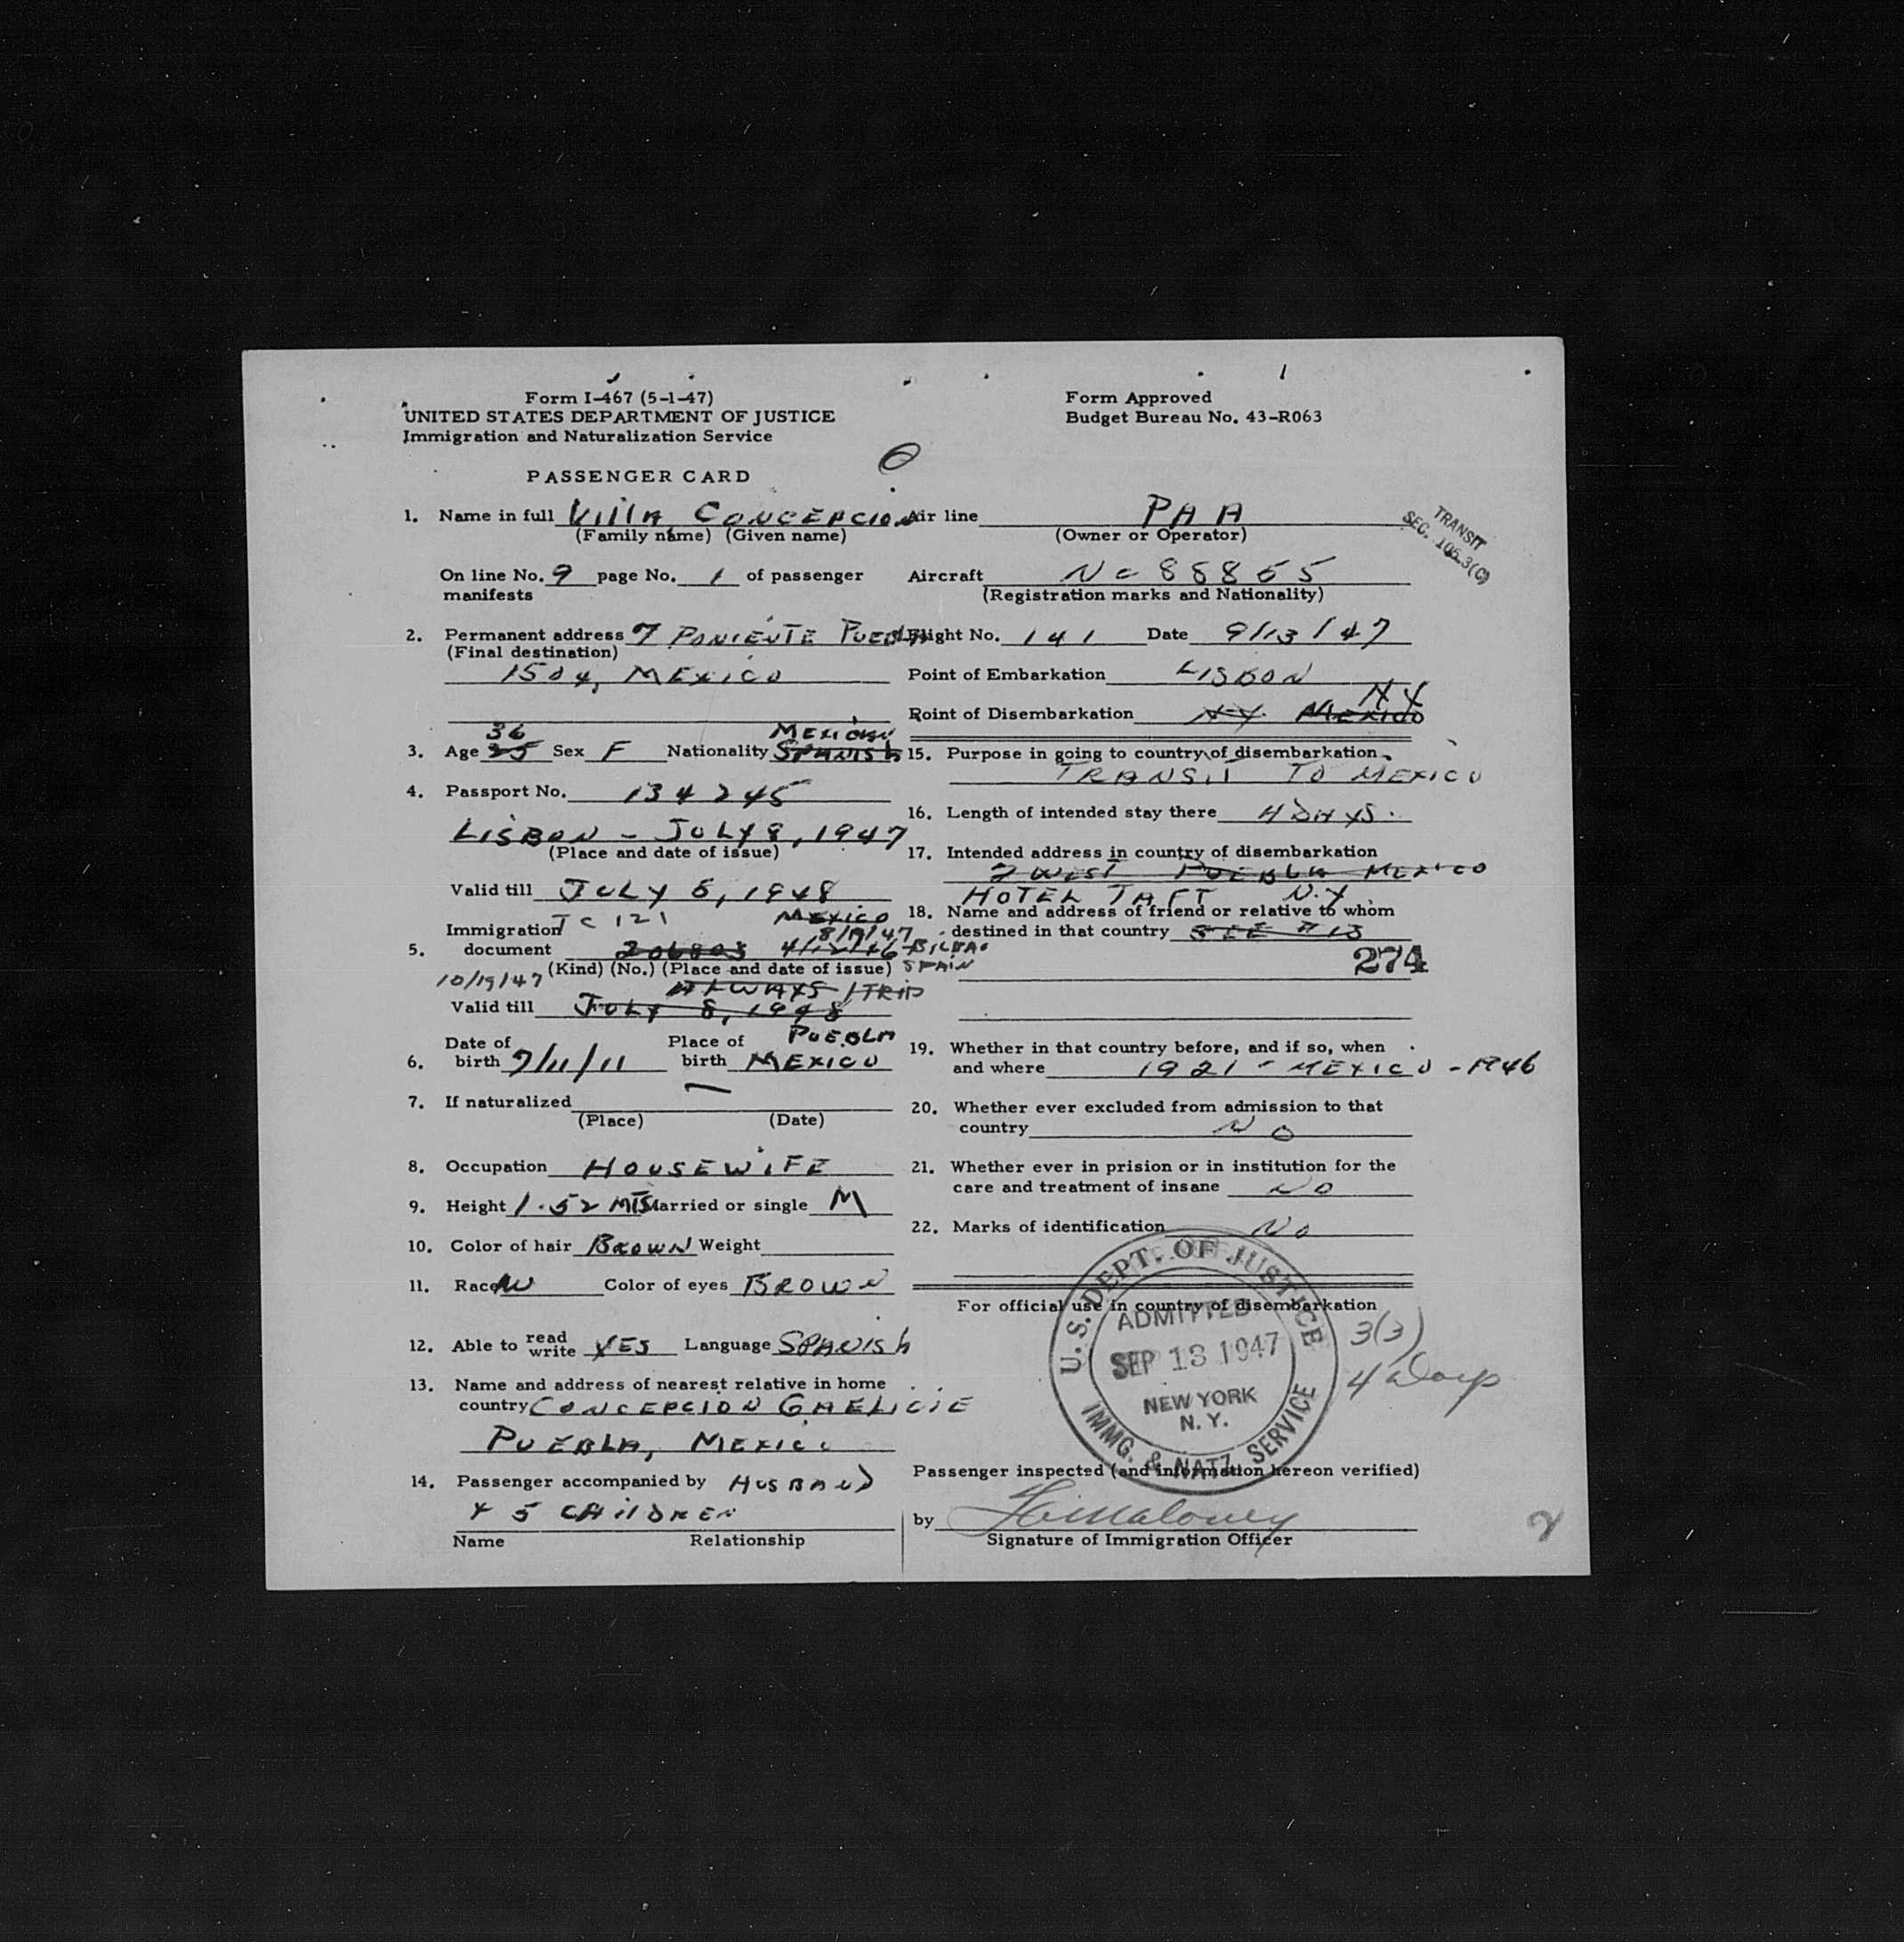 Form I-467 (5-1-47)
UNITED STATES DEPARTMENT OF JUSTICE
Immigration and Naturalization Service
Form Approved
Budget Bureau No. 43-R063
PASSENGER CARD
1. Name in full VillA, CONCEPCION
(Family name) (Given name)
On line No. 9 page No. 1 of passenger
manifests
2. Permanent address 7 PONIENTE PUEBLA
(Final destination)
1504, MEXICO
36 MEXICAN
3. Age 25 Sex F Nationality SPANISh
4. Passport No. 134245
LISBON - JULY 8, 1947
(Place and date of issue)
Valid till JULY 8, 1948
Immigration TC 121 MEXICO
8/19/47
5. document 206803 4/12/46 BILBAO
(Kind) (No.) (Place and date of issue) SPAIN
10/19/47 ALWAYS 1 TRIP
Valid till JULY 8, 1948
Date of Place of PUEBLA
6. birth 7/11/11 birth MEXICO
7. If naturalized —
(Place) (Date)
8. Occupation HOUSEWIFE
9. Height 1.52 MTS Married or single M
10. Color of hair BROWN Weight
11. Race W Color of eyes BROWN
12. Able to read write YES Language SPANISh
13. Name and address of nearest relative in home
country CONCEPCION GAELICIE
PUEBLA, MEXICO
14. Passenger accompanied by HUSBAND
+ 5 CHILDREN
Name Relationship
Air line PAA
(Owner or Operator)
TRANSIT
SEC. 105.3(C)
Aircraft NC 88855
(Registration marks and Nationality)
Flight No. 141 Date 9/13/47
Point of Embarkation LISBON
NY
Point of Disembarkation NY MEXICO
15. Purpose in going to country of disembarkation
TRANSIT TO MEXICO
16. Length of intended stay there 4 DAYS.
17. Intended address in country of disembarkation
7 WEST PUEBLA MEXICO
HOTEL TAFT N.Y.
18. Name and address of friend or relative to whom
destined in that country SEE #13
274
19. Whether in that country before, and if so, when
and where 1921 - MEXICO - 1946
20. Whether ever excluded from admission to that
country NO
21. Whether ever in prision or in institution for the
care and treatment of insane NO
22. Marks of identification NO
For official use in country of disembarkation
U.S. DEPT. OF JUSTICE
ADMITTED
SEP 13 1947
NEW YORK
N. Y.
IMMG. & NATZ. SERVICE
3(3)
4 Days
Passenger inspected (and information hereon verified)
by Maloney
Signature of Immigration Officer
2